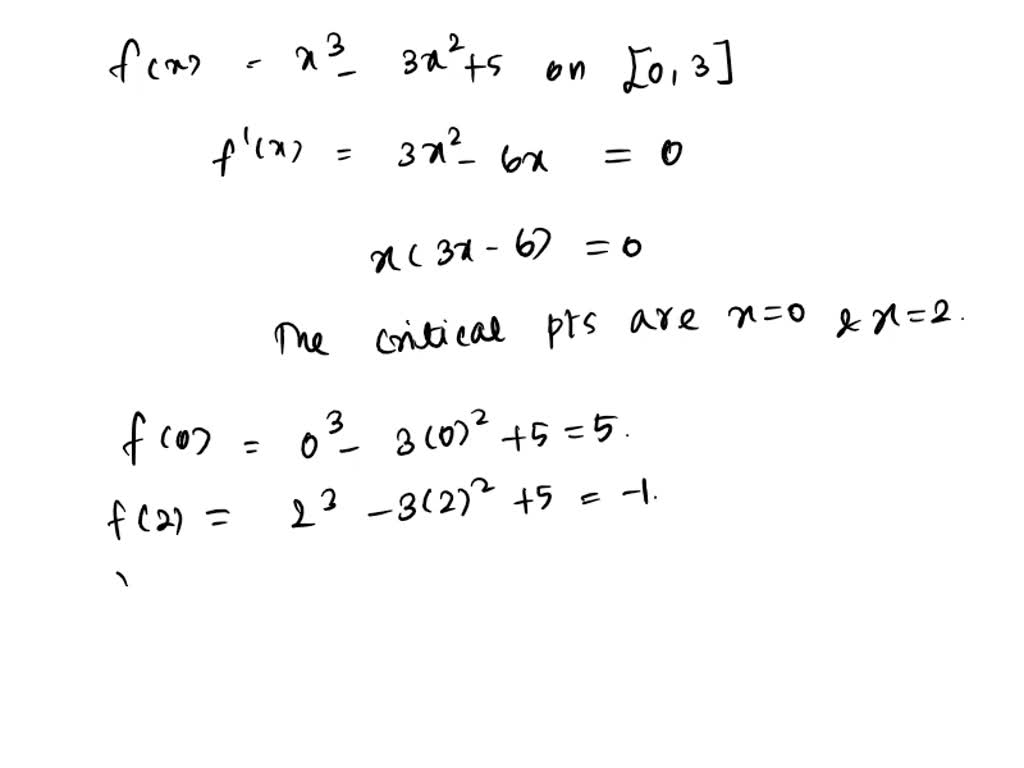 f(x) = x³ - 3x² + 5 on [0, 3]
f'(x) = 3x² - 6x = 0
x(3x - 6) = 0
The critical pts are x=0 & x=2.
f(0) = 0³ - 3(0)² + 5 = 5.
f(2) = 2³ - 3(2)² + 5 = -1.